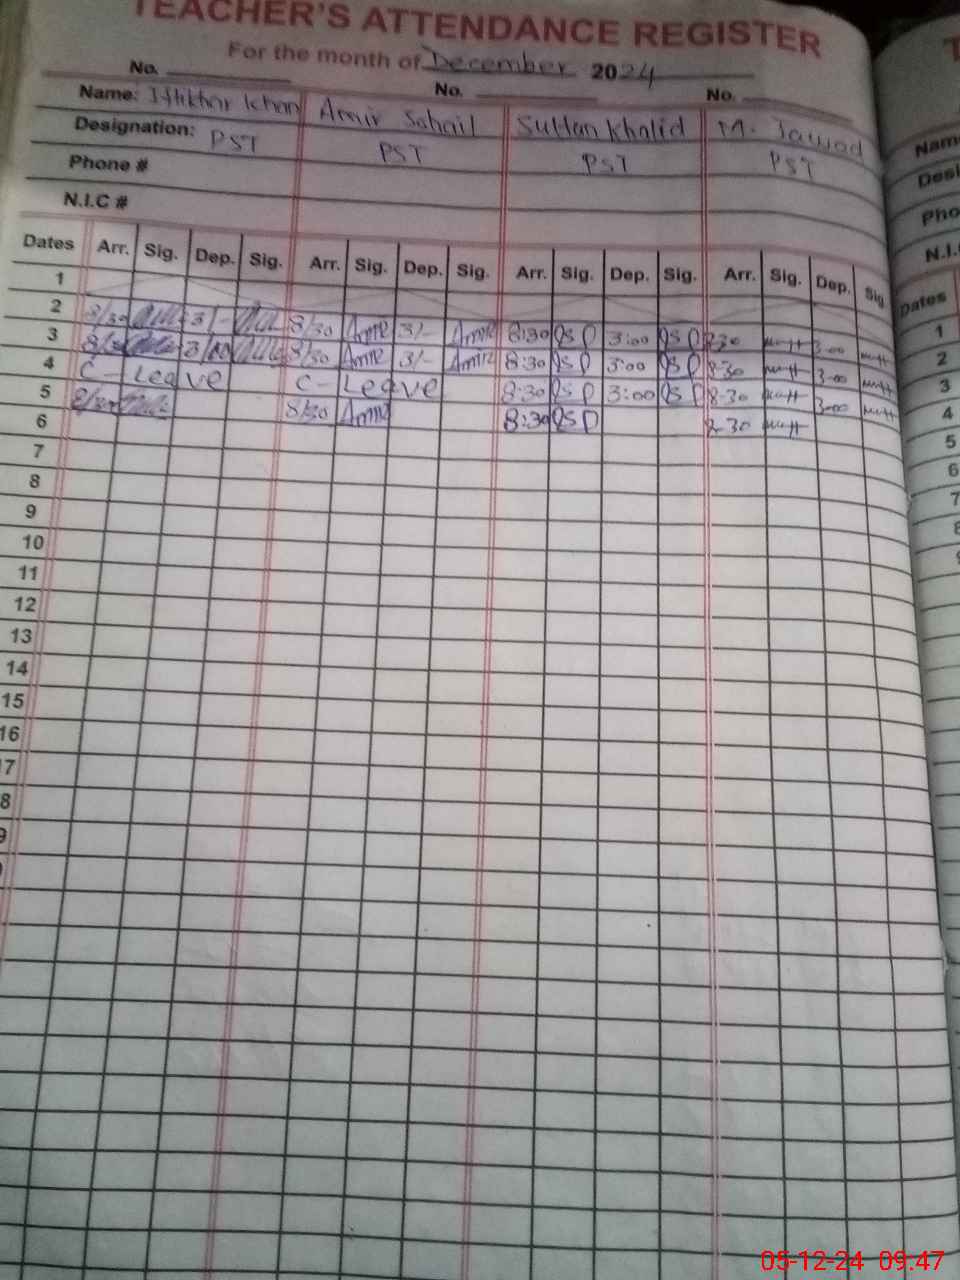 TEACHER'S ATTENDANCE REGISTER
For the month of December 2024
No. No. No.
Name: Iftikhar Khan Amir Sohail Sultan Khalid M. Jawad
Designation: PST PST PST PST
Phone #
N.I.C #
Dates Arr. Sig. Dep. Sig. Arr. Sig. Dep. Sig. Arr. Sig. Dep. Sig. Arr. Sig. Dep. Sig
1
2 8/30 3/- 8/30 Amir 3/- Amir 8:30 3:00 8-30 3-00
3 8/30 3/00 8/30 Amir 3/- Amir 8:30 3:00 8-30 3-00
4 C-Leave C-Leave 8:30 3:00 8-30 3-00
5 8/30 8/30 Amir 8:30 8-30
6
7
8
9
10
11
12
13
14
15
16
7
8
9
Nam
Desi
Pho
N.I.
Dates
1
2
3
4
5
6
7
05-12-24 09.47